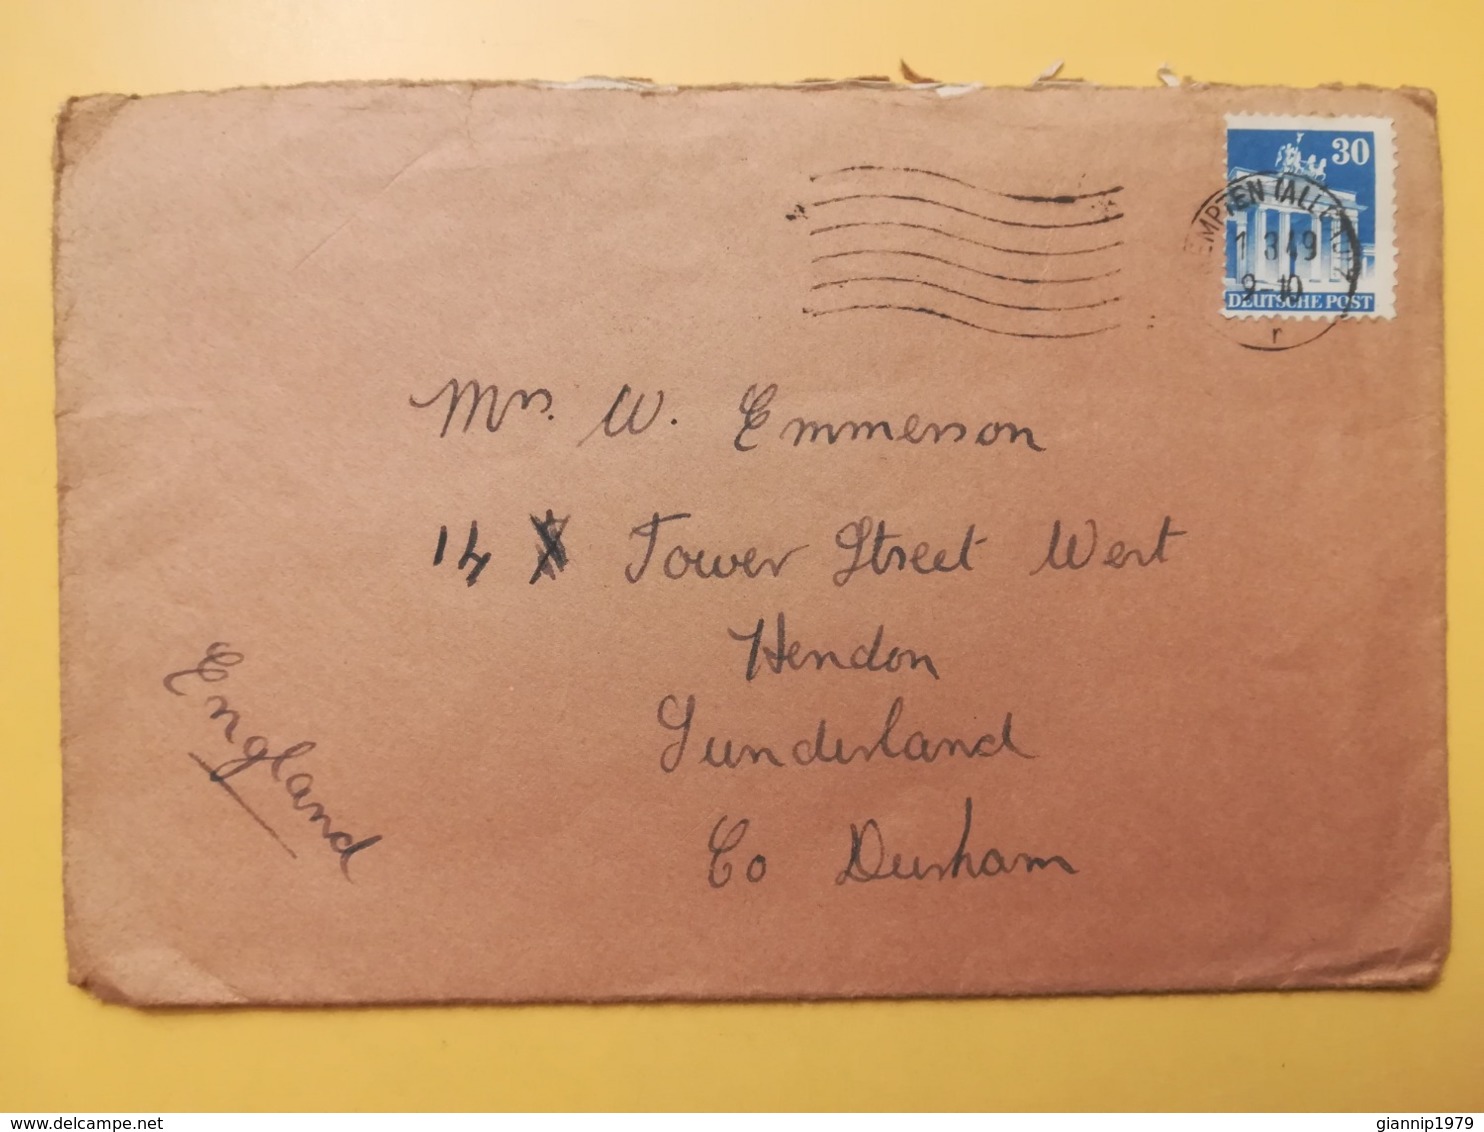 30
EMPTEN (ALLGÄU)
1 8 49
9-10
r
DEUTSCHE POST
Mrs. W. Emmerson
14 Tower Street West
Hendon
Sunderland
Co Durham
England
delcampe.net
giannip1979